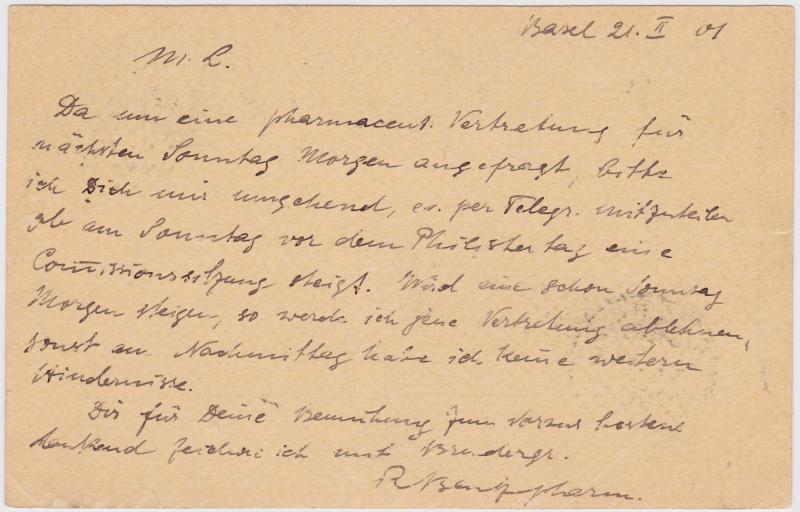 Basel 21. II 01
M. L.
Da um eine pharmaceut. Vertretung für
nächsten Sonntag Morgen angefragt, bitte
ich Dich mir umgehend, ev. per Telegr. mitzuteilen
ob am Sonntag vor dem Philistertag eine
Commissionssitzung steigt. Wird eine schon Sonntag
Morgen steigen, so werde ich jene Vertretung ablehnen,
sonst am Nachmittag habe ich keine weitern
Hindernisse.
Dir für Deine Bemühung zum voraus bestens
dankend zeichne ich mit Brudergr.
R pharm.